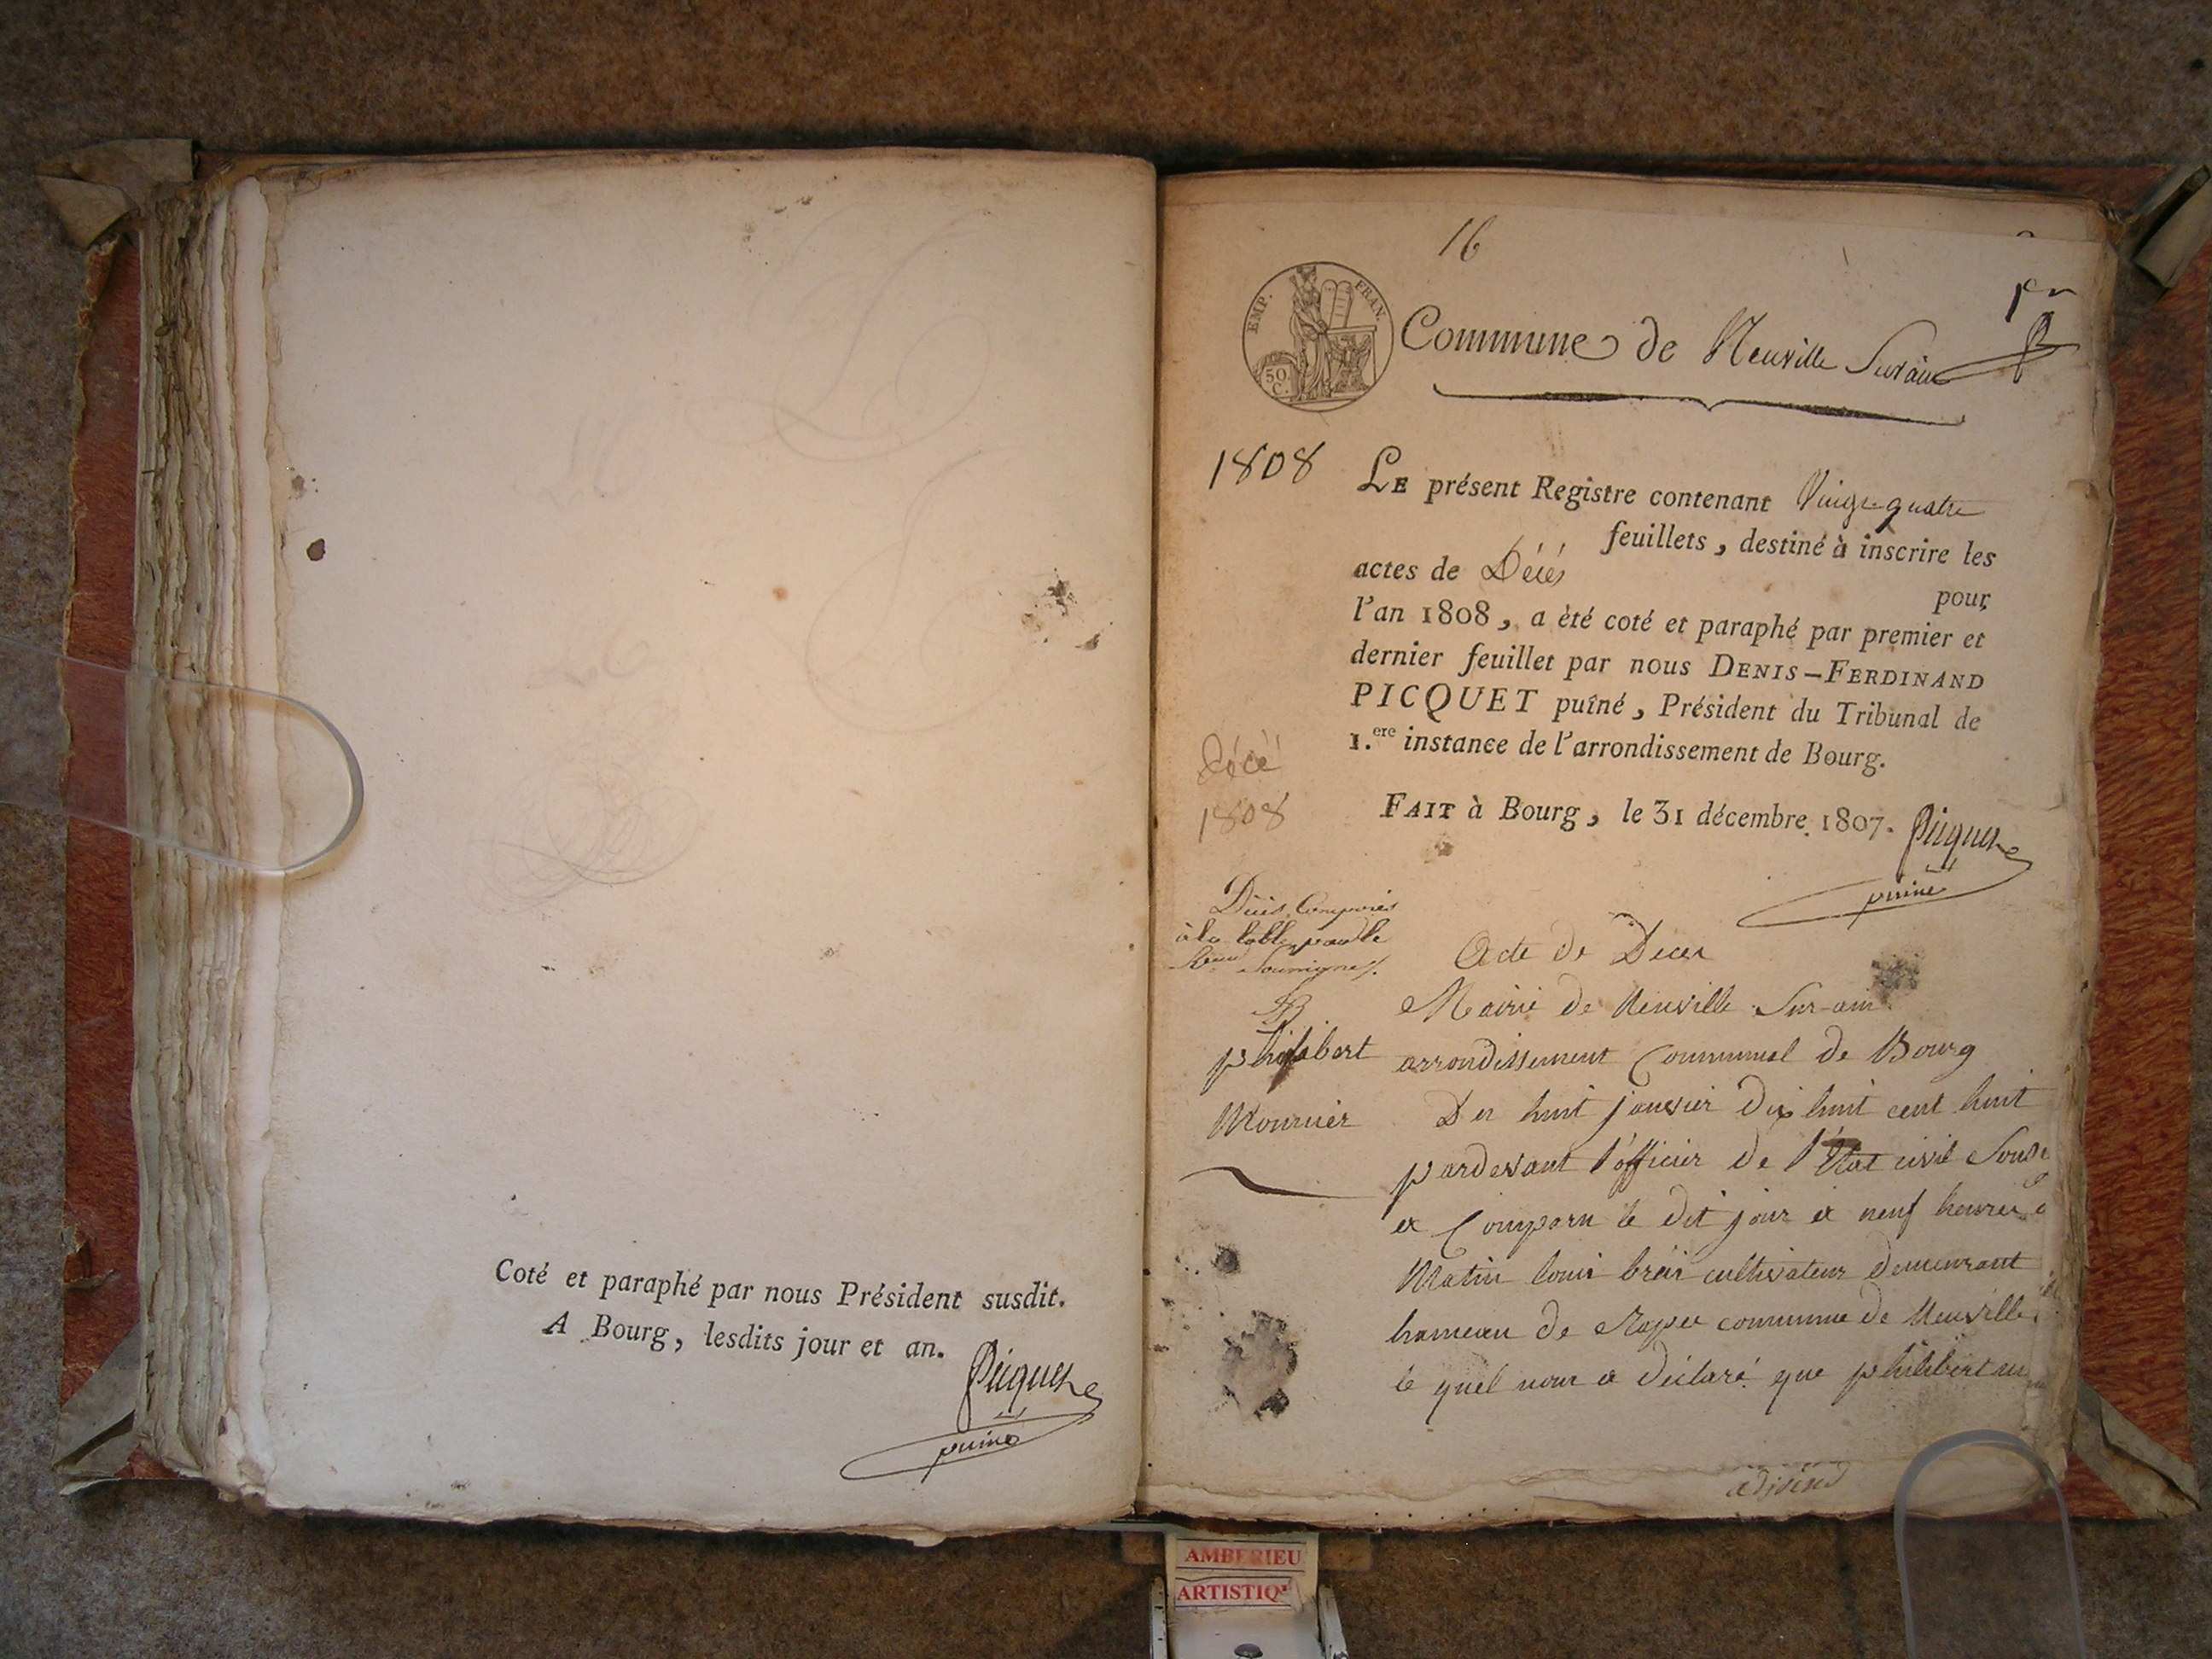 Coté et paraphé par nous Président susdit.
A Bourg, lesdits jour et an.
Picquet
puiné
16
1er
EMP. FRAN.
50 C.
Commune de Neuville Sur ain
1808
LE présent Registre contenant Vingt quatre
feuillets, destiné à inscrire les
actes de Décès
pour
l'an 1808, a èté coté et paraphé par premier et
dernier feuillet par nous DENIS-FERDINAND
PICQUET puîné, Président du Tribunal de
1.ere instance de l'arrondissement de Bourg.
FAIT à Bourg, le 31 décembre 1807.
Picquet
puiné
Décé
1808
à la table par le
Acte de Deces
Mairie de Neuville Sur-ain
philibert
Mounier
arrondissement Communal de Bourg
Du huit janvier dix huit cent huit
pardevant l'officier de l'État civil
a Comparu le dit jour a neuf heures
Matin louis cultivateur demeurant
hameau de commune de Neuville
le quel nous a déclaré que philibert
AMBERIEU
ARTISTIQ